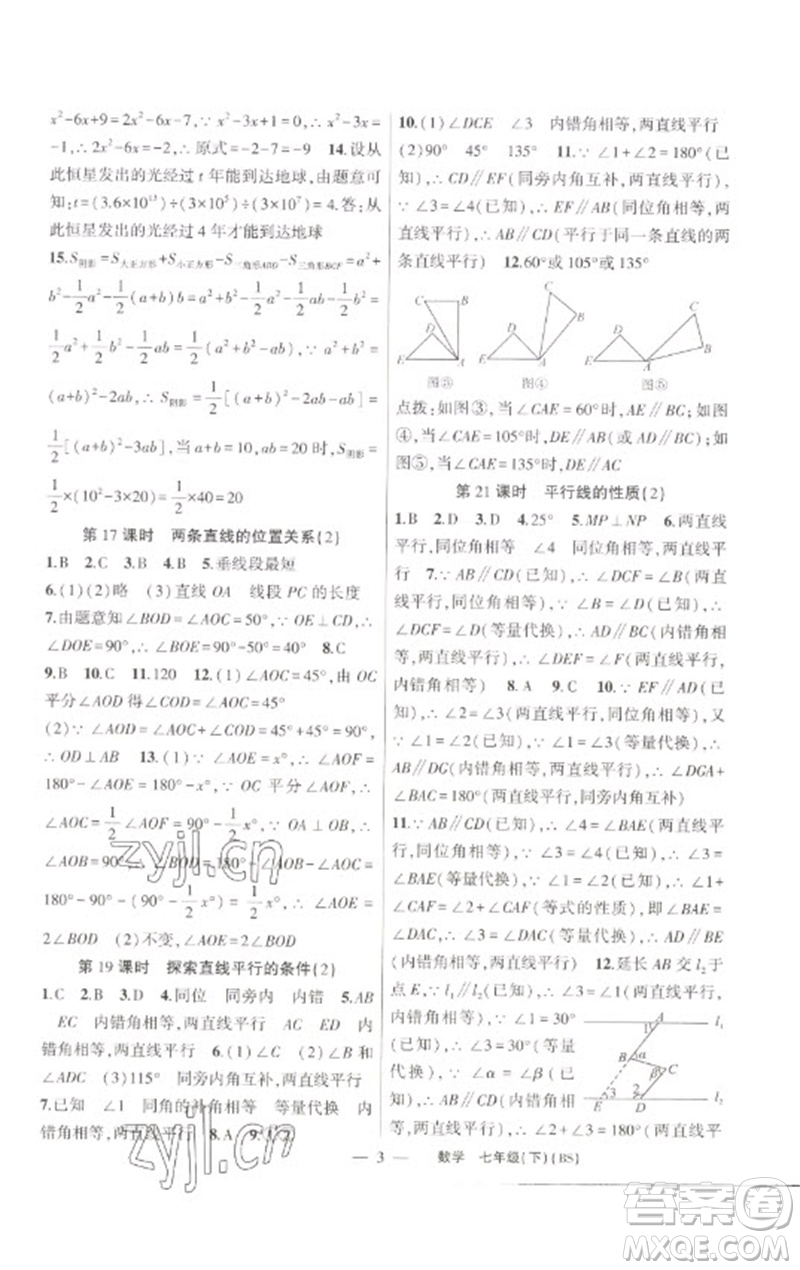 x²-6x+9=2x²-6x-7,∵x²-3x+1=0,∴x²-3x=
-1,∴2x²-6x=-2,∴原式=-2-7=-9 14.设从
此恒星发出的光经过 t 年能到达地球,由题意可
知:t=(3.6×10¹⁵)÷(3×10⁸)÷(3×10⁷)=4.答:从
此恒星发出的光经过 4 年才能到达地球
15.S阴影=S大正方形+S小正方形-S三角形ABD-S三角形BCF=a²+
b²-1/2a²-1/2(a+b)b=a²+b²-1/2a²-1/2ab-1/2b²=
1/2a²+1/2b²-1/2ab=1/2(a²+b²-ab),∵a²+b²=
(a+b)²-2ab,∴S阴影=1/2[(a+b)²-2ab-ab]=
1/2[(a+b)²-3ab],当a+b=10,ab=20时,S阴影=
1/2×(10²-3×20)=1/2×40=20
第 17 课时 两条直线的位置关系(2)
1.B 2.C 3.B 4.B 5.垂线段最短
6.(1)(2)略 (3)直线 OA 线段 PC 的长度
7.由题意知∠BOD=∠AOC=50°,∵OE⊥CD,∴
∠DOE=90°,∴∠BOE=90°-50°=40° 8.C
9.B 10.C 11.120 12.(1)∵∠AOC=45°,由 OC
平分∠AOD 得∠COD=∠AOC=45°
(2)∵∠AOD=∠AOC+∠COD=45°+45°=90°,
∴OD⊥AB 13.(1)∵∠AOE=x°,∴∠AOF=
180°-∠AOE=180°-x°,∵OC 平分∠AOF,∴
∠AOC=1/2∠AOF=90°-1/2x°,∵OA⊥OB,∴
∠AOB=90°,∴∠BOD=180°-∠AOB-∠AOC=
180°-90°-(90°-1/2x°)=1/2x°,∴∠AOE=
2∠BOD (2)不变,∠AOE=2∠BOD
第 19 课时 探索直线平行的条件(2)
1.C 2.B 3.D 4.同位 同旁内 内错 5.AB
EC 内错角相等,两直线平行 AC ED 内
错角相等,两直线平行 6.(1)∠C (2)∠B 和
∠ADC (3)115° 同旁内角互补,两直线平行
7.已知 ∠1 同角的补角相等 等量代换 内
错角相等,两直线平行 8.A 9.
10.(1)∠DCE ∠3 内错角相等,两直线平行
(2)90° 45° 135° 11.∵∠1+∠2=180°(已
知),∴CD∥EF(同旁内角互补,两直线平行),
∵∠3=∠4(已知),∴EF∥AB(同位角相等,两
直线平行),∴AB∥CD(平行于同一条直线的两
条直线平行) 12.60°或105°或135°
C B D E A
C B D E A
C D B E A
图③ 图④ 图⑤
点拨:如图③,当∠CAE=60°时,AE∥BC;如图
④,当∠CAE=105°时,DE∥AB(或 AD∥BC);如
图⑤,当∠CAE=135°时,DE∥AC
第 21 课时 平行线的性质(2)
1.B 2.D 3.D 4.25° 5.MP⊥NP 6.两直线
平行,同位角相等 ∠4 同位角相等,两直线平
行 7.∵AB∥CD(已知),∴∠B=∠DCF(两直线
平行,同位角相等),∵∠B=∠D(已知),∴
∠DCF=∠D(等量代换),∴AD∥BC(内错角相
等,两直线平行),∴∠DEF=∠F(两直线平行,
内错角相等) 8.A 9.C 10.∵EF∥AD(已
知),∴∠2=∠3(两直线平行,同位角相等),又
∵∠1=∠2(已知),∴∠1=∠3(等量代换),∴
AB∥DG(内错角相等,两直线平行),∴∠DGA+
∠BAC=180°(两直线平行,同旁内角互补)
11.∵AB∥CD(已知),∴∠4=∠BAE(两直线平
行,同位角相等),∵∠3=∠4(已知),∴∠3=
∠BAE(等量代换),∵∠1=∠2(已知),∴∠1+
∠CAF=∠2+∠CAF(等式的性质),即∠BAE=
∠CAD,∴∠3=∠CAD(等量代换),∴AD∥BE
(内错角相等,两直线平行) 12.延长 AB 交 l₂于
点 E,∵l₁∥l₂(已知),
∠1=30°(已知),∴
∠3=∠1=30°(等量
代换),∵∠α=∠β(已
知),∴AB∥CD(内错
角相等,两直线平
行),∴∠2+∠3=180°(两直线平行,同旁内角
A l₁ 1 B α β C 3 2 E D l₂
— 3 — 数学 七年级(下)(BS)
zyjl.cn
zyjl.cn
答案卷
MXQE.COM